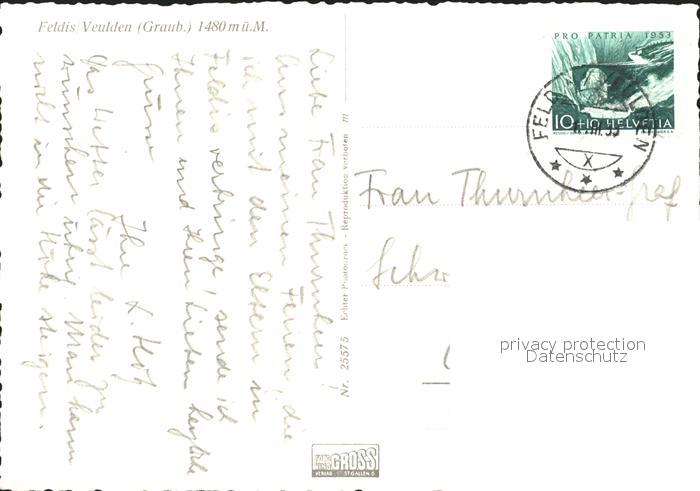 Feldis/Veulden (Graub.) 1480 m ü. M.
Liebe Frau Thurnheer!
Aus meinen Ferien, die
ich mit den Eltern in
Feldis verbringe, sende ich
Ihnen und Ihren Lieben herzliche
Grüsse
Ihre L. Hof
Das Wetter lässt leider zu
wünschen übrig. Man kann
nicht in die Höhe steigen.
Nr. 25575 Echter Photo - Reproduktion verboten
PRO PATRIA 1953
10+10 HELVETIA
X
Frau Thurnheer-Graf
Schw
privacy protection
Datenschutz
GROSS
VERLAG ST GALLEN